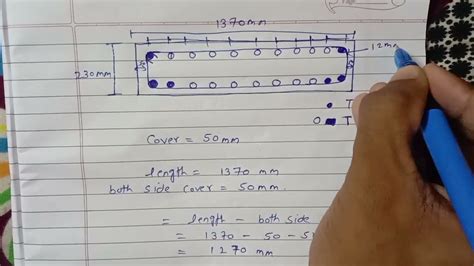 1370mm
12m
230mm
50
50
T
T
Cover = 50mm
length = 1370 mm
both side cover = 50mm.
= length - both side
= 1370 - 50 - 5
= 1270 mm